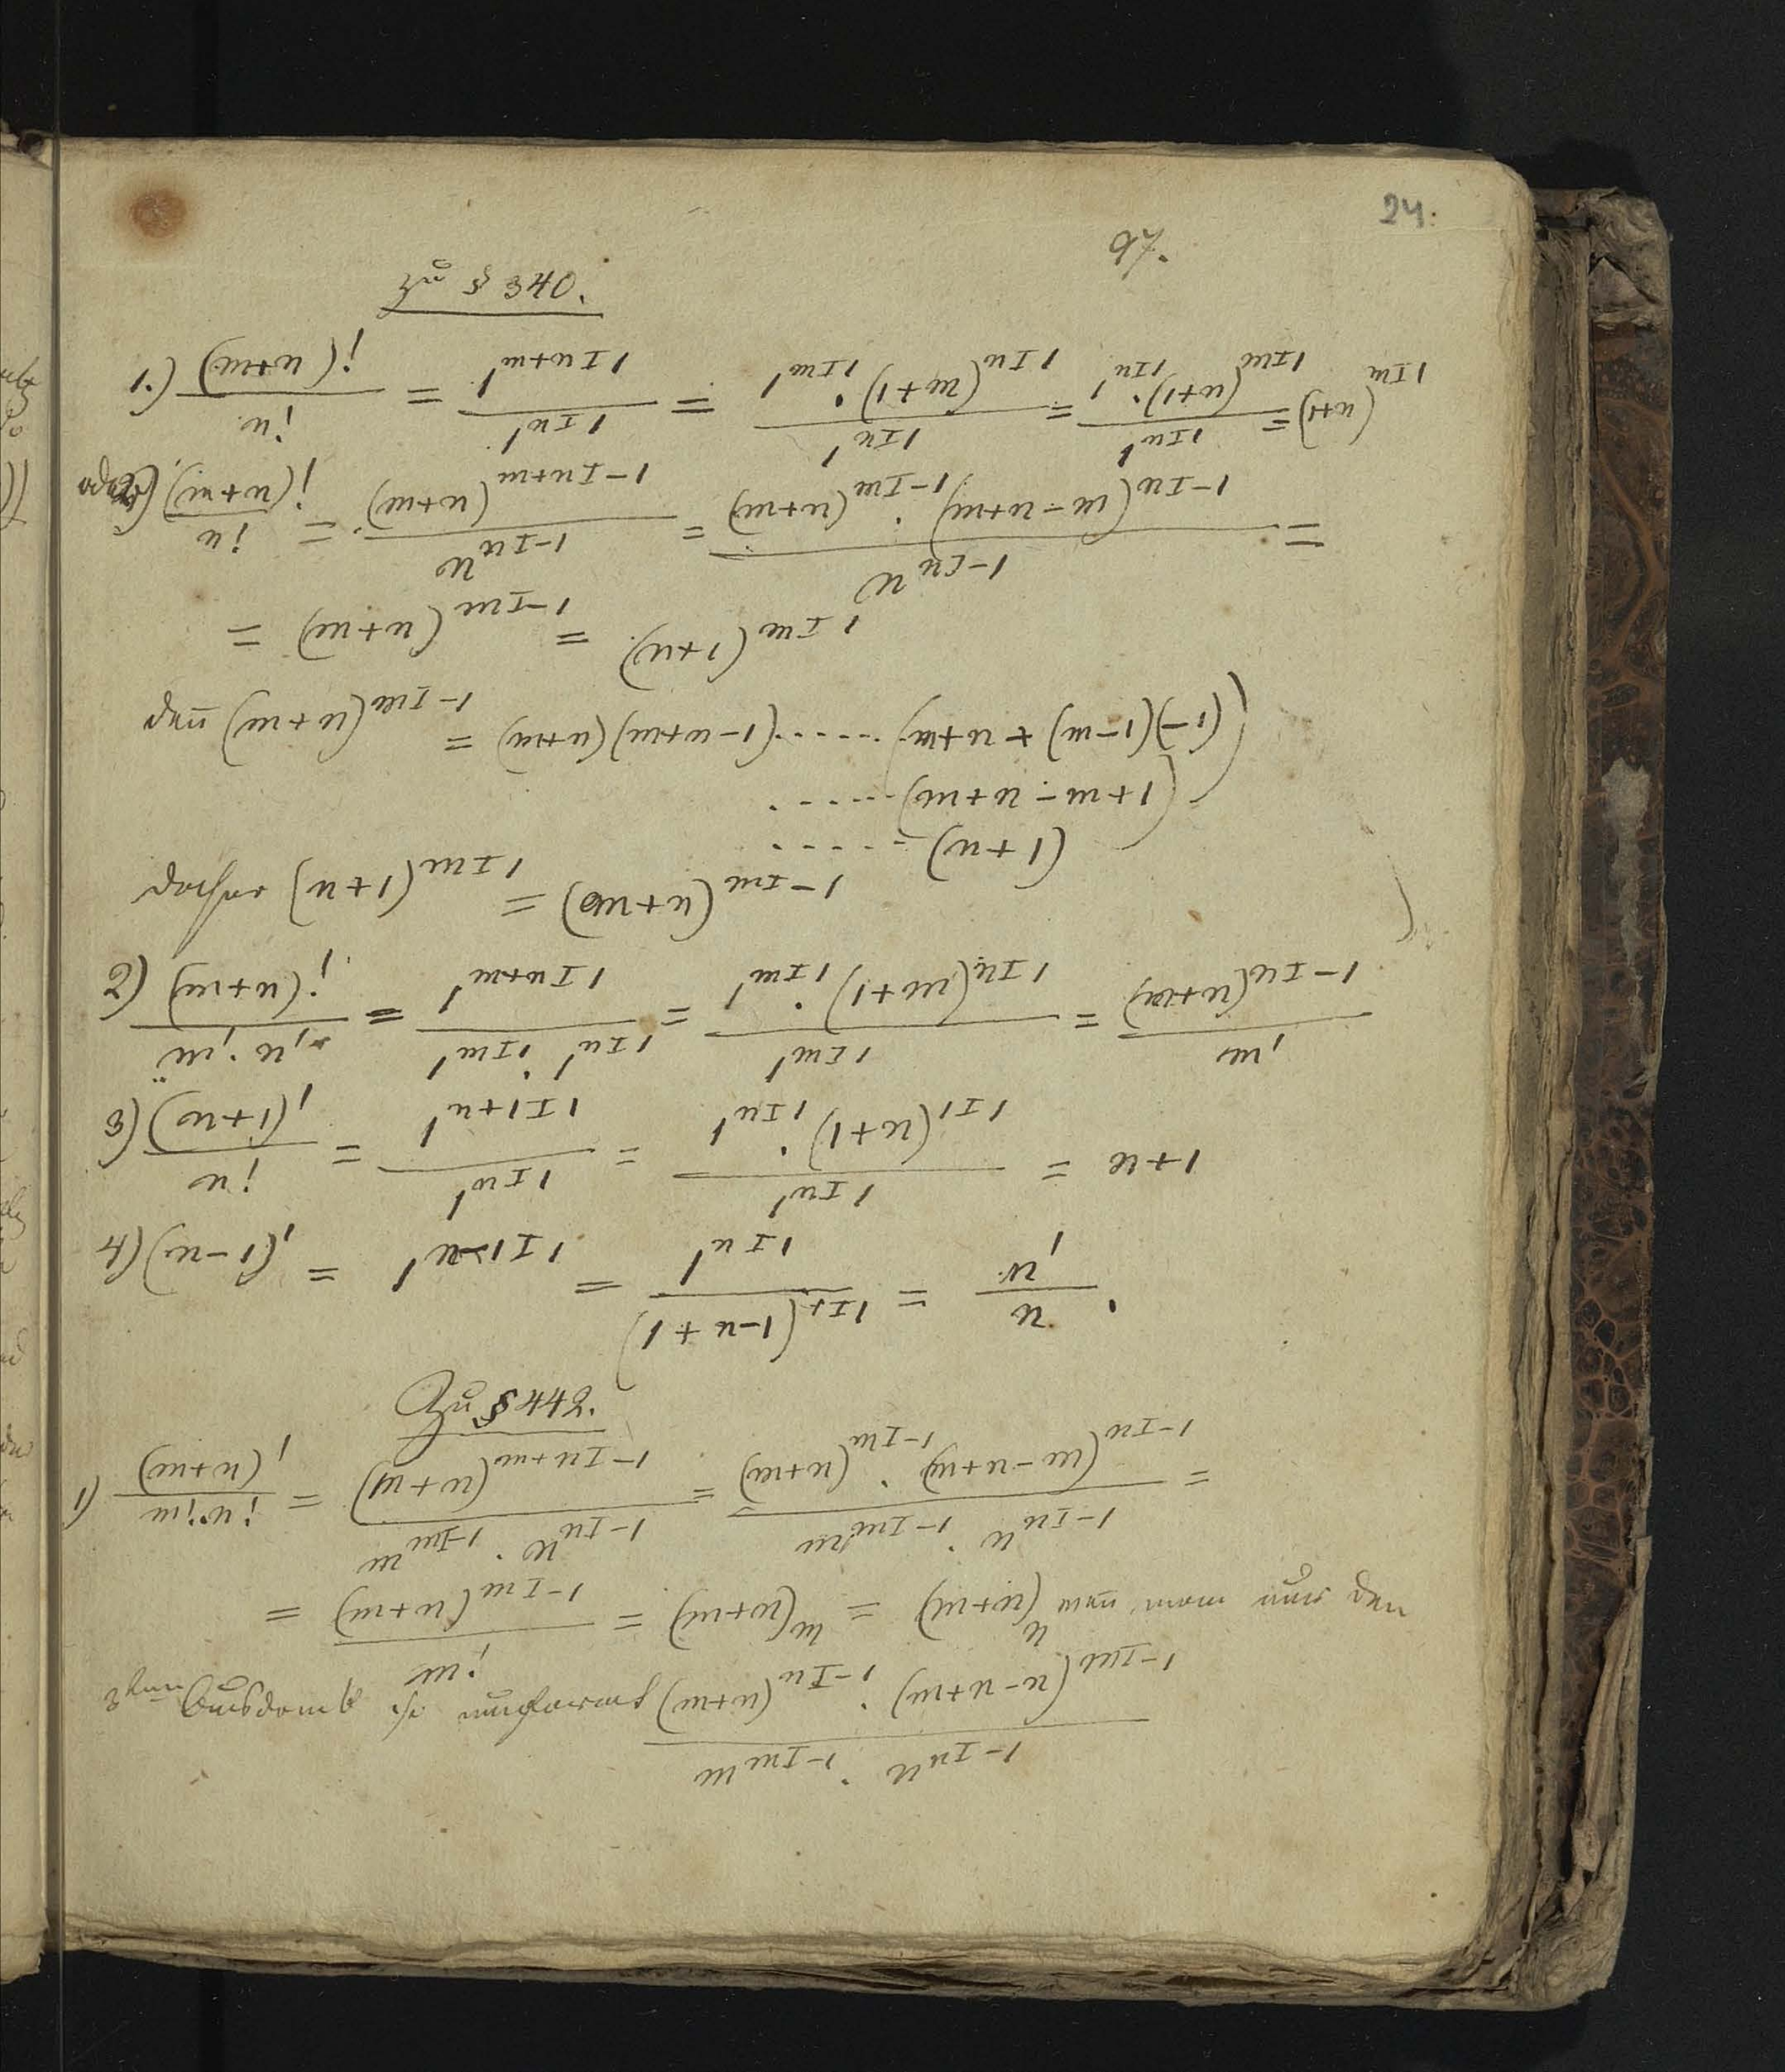 24.
97.
Zu § 340.
1.) (n+m)!/n! = 1^{n+mI1}/1^{nI1} = 1^{mI1}.(1+m)^{nI1}/1^{nI1} = 1^{nI1}.(1+n)^{mI1}/1^{nI1} = (n+1)^{mI1}
oder (n+m)!/n! = (n+m)^{n+mI-1}/n^{nI-1} = (n+m)^{mI-1}.(n+m-m)^{nI-1}/n^{nI-1} =
= (n+m)^{mI-1} = (n+1)^{mI1}
denn (n+m)^{mI-1} = (n+m)(n+m-1)......(n+m+(m-1)(-1))
......(n+m-m+1)
......(n+1)
daher (n+1)^{mI1} = (n+m)^{mI-1}
2) (n+m)!/n!.m! = 1^{n+mI1}/1^{mI1}.1^{nI1} = 1^{mI1}.(1+m)^{nI1}/1^{mI1} = (n+m)^{mI-1}/m!
3) (n+1)!/n! = 1^{n+1I1}/1^{nI1} = 1^{nI1}.(1+n)^{1I1}/1^{nI1} = n+1
4) (n-1)! = 1^{n-1I1} = 1^{nI1}/(1+n-1)^{1I1} = n!/n
Zu § 442.
1) (n+m)!/m!.n! = (n+m)^{n+mI-1}/m^{mI-1}.n^{nI-1} = (n+m)^{mI-1}.(n+m-m)^{nI-1}/m^{mI-1}.n^{nI-1} =
= (n+m)^{mI-1}/m! = (n+m)_m = (n+m)_n wenn man nur den
3ten Ausdruck so umformt (n+m)^{nI-1}.(n+m-n)^{mI-1}/m^{mI-1}.n^{nI-1}